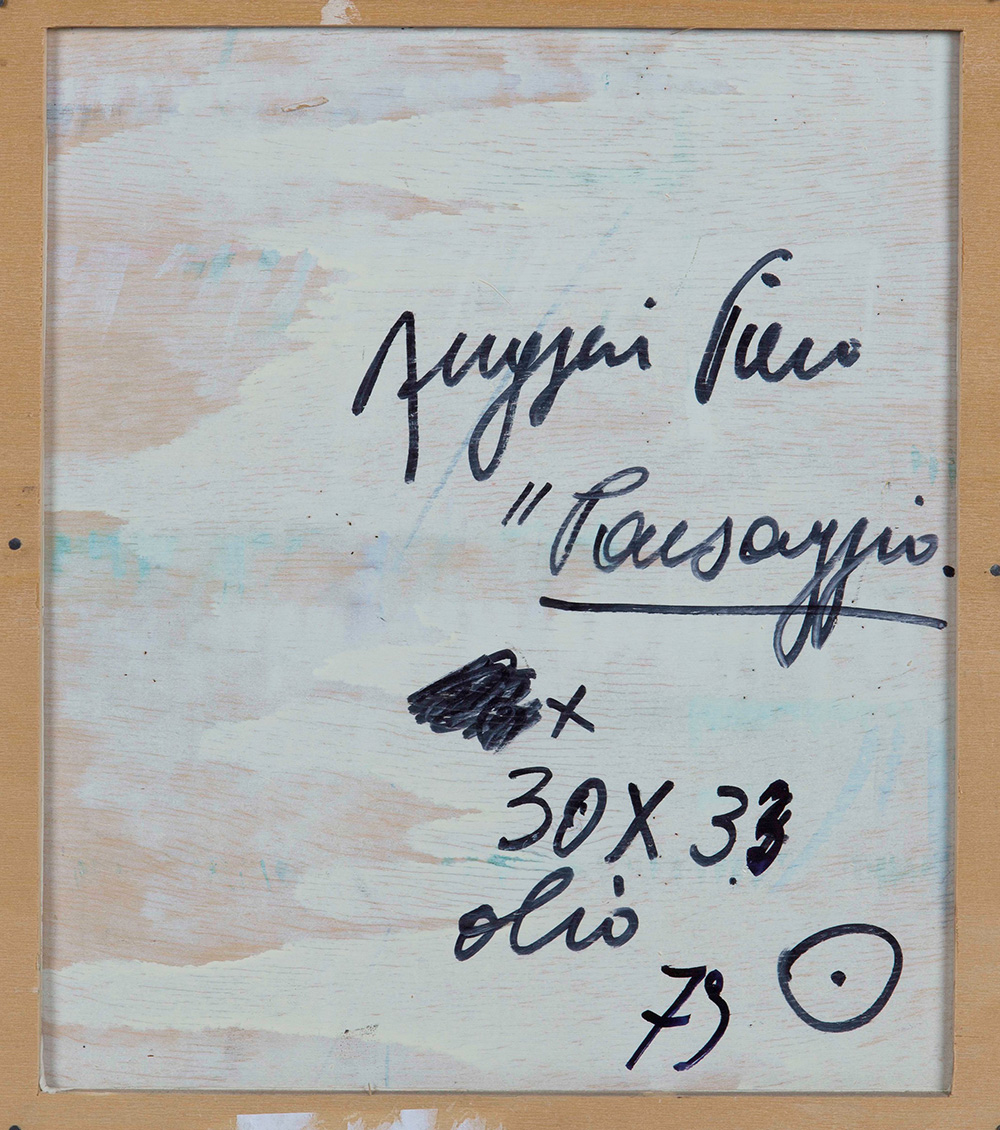 Ruggeri Piero
"Paesaggio
x
30 X 33
olio
79